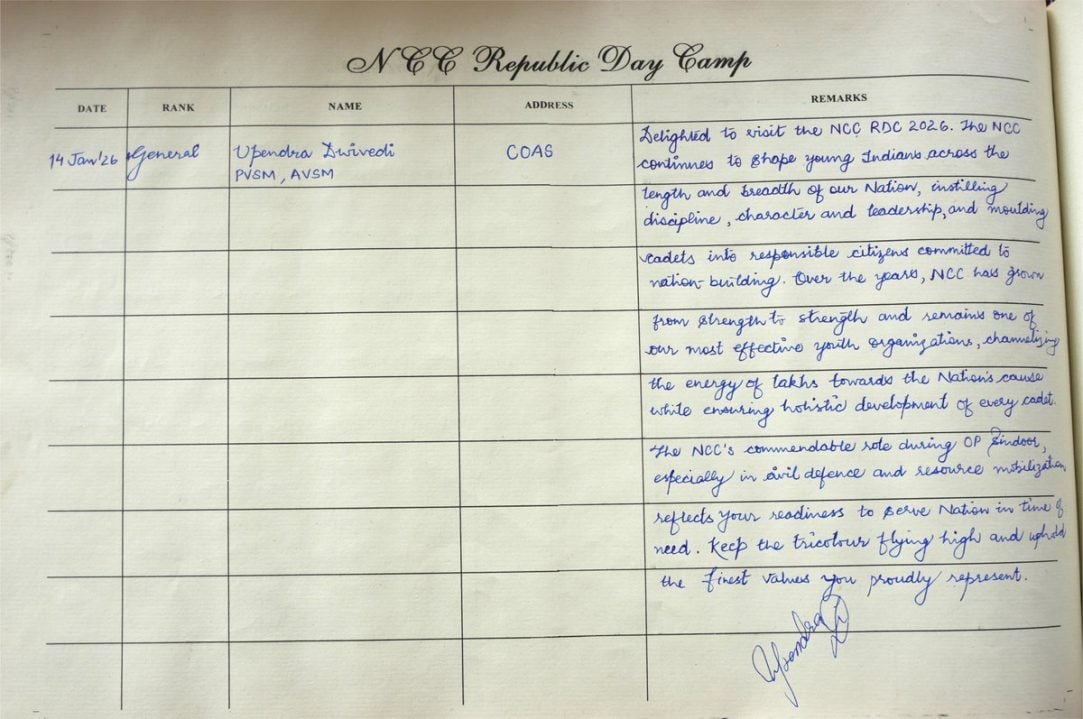 NCC Republic Day Camp
DATE RANK NAME ADDRESS REMARKS
14 Jan'26 General Upendra Dwivedi COAS
PVSM, AVSM
Delighted to visit the NCC RDC 2026. The NCC
continues to shape young Indians across the
length and breadth of our Nation, instilling
discipline, character and leadership, and moulding
cadets into responsible citizens committed to
nation-building. Over the years, NCC has grown
from strength to strength and remains one of
our most effective youth organizations, channelizing
the energy of lakhs towards the Nation's cause
while ensuring holistic development of every cadet.
The NCC's commendable role during OP Sindoor,
especially in civil defence and resource mobilization
reflects your readiness to serve Nation in time of
need. Keep the tricolour flying high and uphold
the finest values you proudly represent.
Upendra